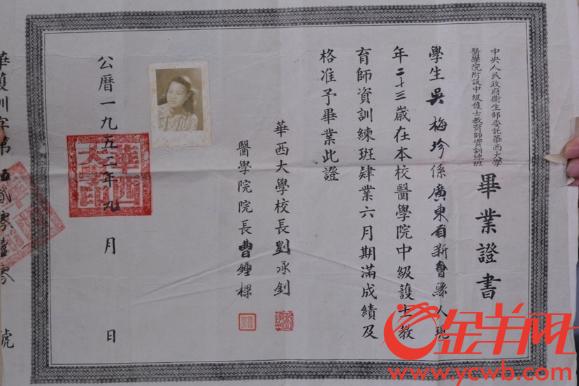 中央人民政府衛生部委託華西大學
醫學院附設中級護士教育師資訓練班
畢業證書
學生吳梅珍係廣東省新會縣人現
年二十三歲在本校醫學院中級護士教
育師資訓練班肄業六月期滿成績及
格准予畢業此證
華西大學校長劉承釗
醫學院院長曹鍾樑
公曆一九五二年九月 日
華西大學印
華護訓字第 號
金羊网
www.ycwb.com